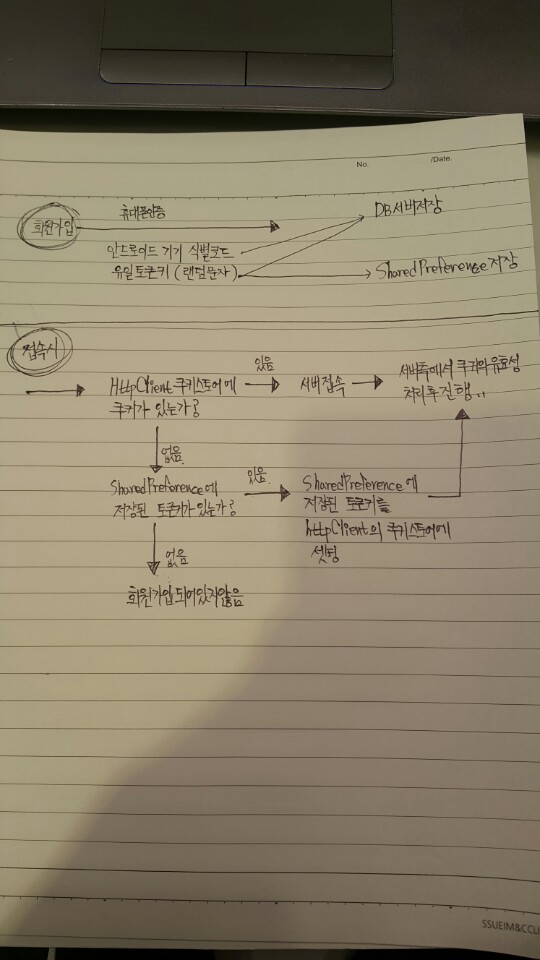 No.
/Date.
회원가입
휴대폰인증
DB서버저장
안드로이드 기기 식별코드
유일토큰키 (랜덤문자)
SharedPreference 저장
접속시
HttpClient 쿠키스토어에
쿠키가 있는가?
있음
서버접속
서버쪽에서 쿠키의 유효성
처리후 진행..
없음
SharedPreference에
저장된 토큰키가 있는가?
있음
SharedPreference에
저장된 토큰키를
httpClient의 쿠키스토어에
셋팅
없음
회원가입 되어있지않음
SSUEIM&CCLI